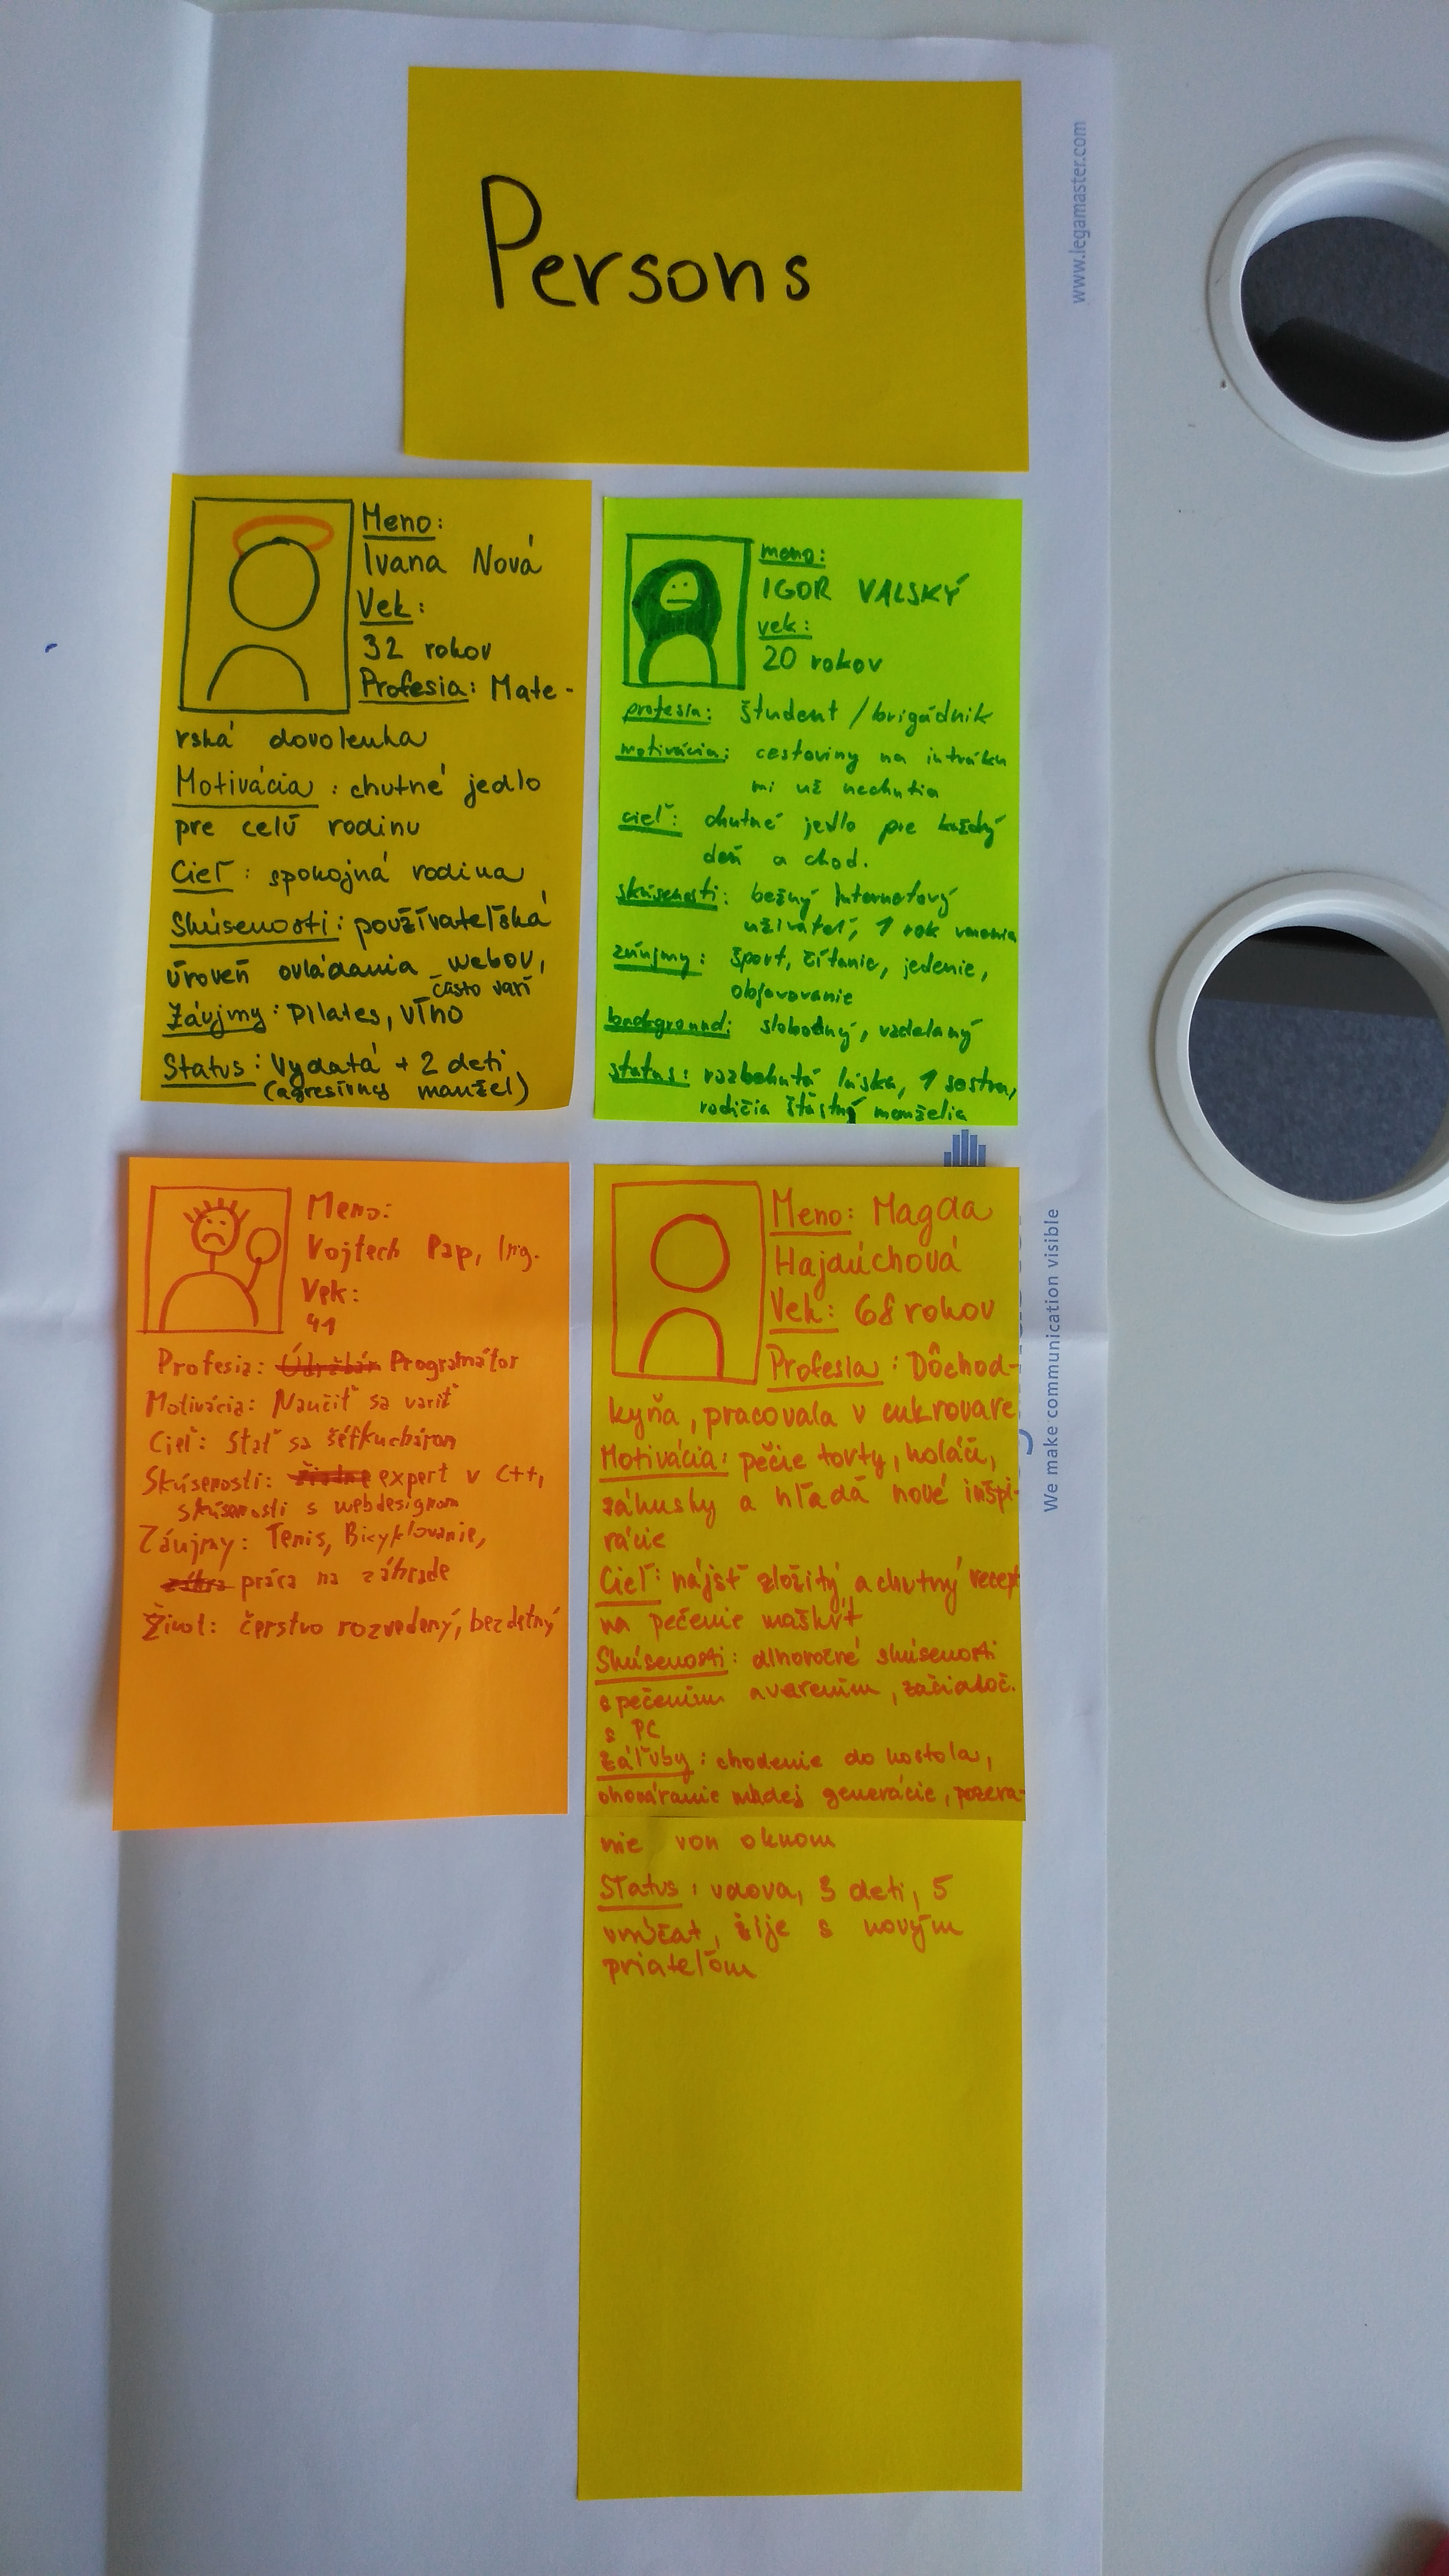 Persons
www.legamaster.com
Meno:
Ivana Nová
Vek:
32 rokov
Profesia: Mate-
rská dovolenka
Motivácia: chutné jedlo
pre celú rodinu
Cieľ: spokojná rodina
Skúsenosti: používateľská
úroveň ovládania webov,
často varí
Záujmy: Pilates, víno
Status: Vydatá + 2 deti
(agresívny manžel)
meno:
IGOR VALSKÝ
vek:
20 rokov
profesia: študent / brigádnik
motivácia: cestoviny na intráku
mi už nechutia
cieľ: chutné jedlo pre každý
deň a chod.
skúsenosti: bežný internetový
užívateľ, 1 rok varenia
záujmy: šport, čítanie, jedenie,
objavovanie
background: slobodný, vzdelaný
status: rozbehnutá láska, 1 sestra,
rodičia šťastný manželia
Meno:
Vojtech Pap, Ing.
Vek:
41
Profesia: Údržbár Programátor
Motivácia: Naučiť sa variť
Cieľ: Stať sa šéfkuchárom
Skúsenosti: žiadne expert v C++,
skúsenosti s webdesignom
Záujmy: Tenis, Bicyklovanie,
záhra práca na záhrade
Život: čerstvo rozvedený, bezdetný
Meno: Magda
Hajdúchová
Vek: 68 rokov
Profesia: Dôchod-
kyňa, pracovala v cukrovare
Motivácia: pečie torty, koláče,
zákusky a hľadá nové inšpi-
rácie
Cieľ: nájsť zložitý a chutný recept
na pečenie maškŕt
Skúsenosti: dlhoročné skúsenosti
s pečením a varením, začiatoč.
s PC
Záľuby: chodenie do kostola,
ohováranie mladej generácie, pozera-
nie von oknom
Status: vdova, 3 deti, 5
vnúčat, žije s novým
priateľom
We make communication visible